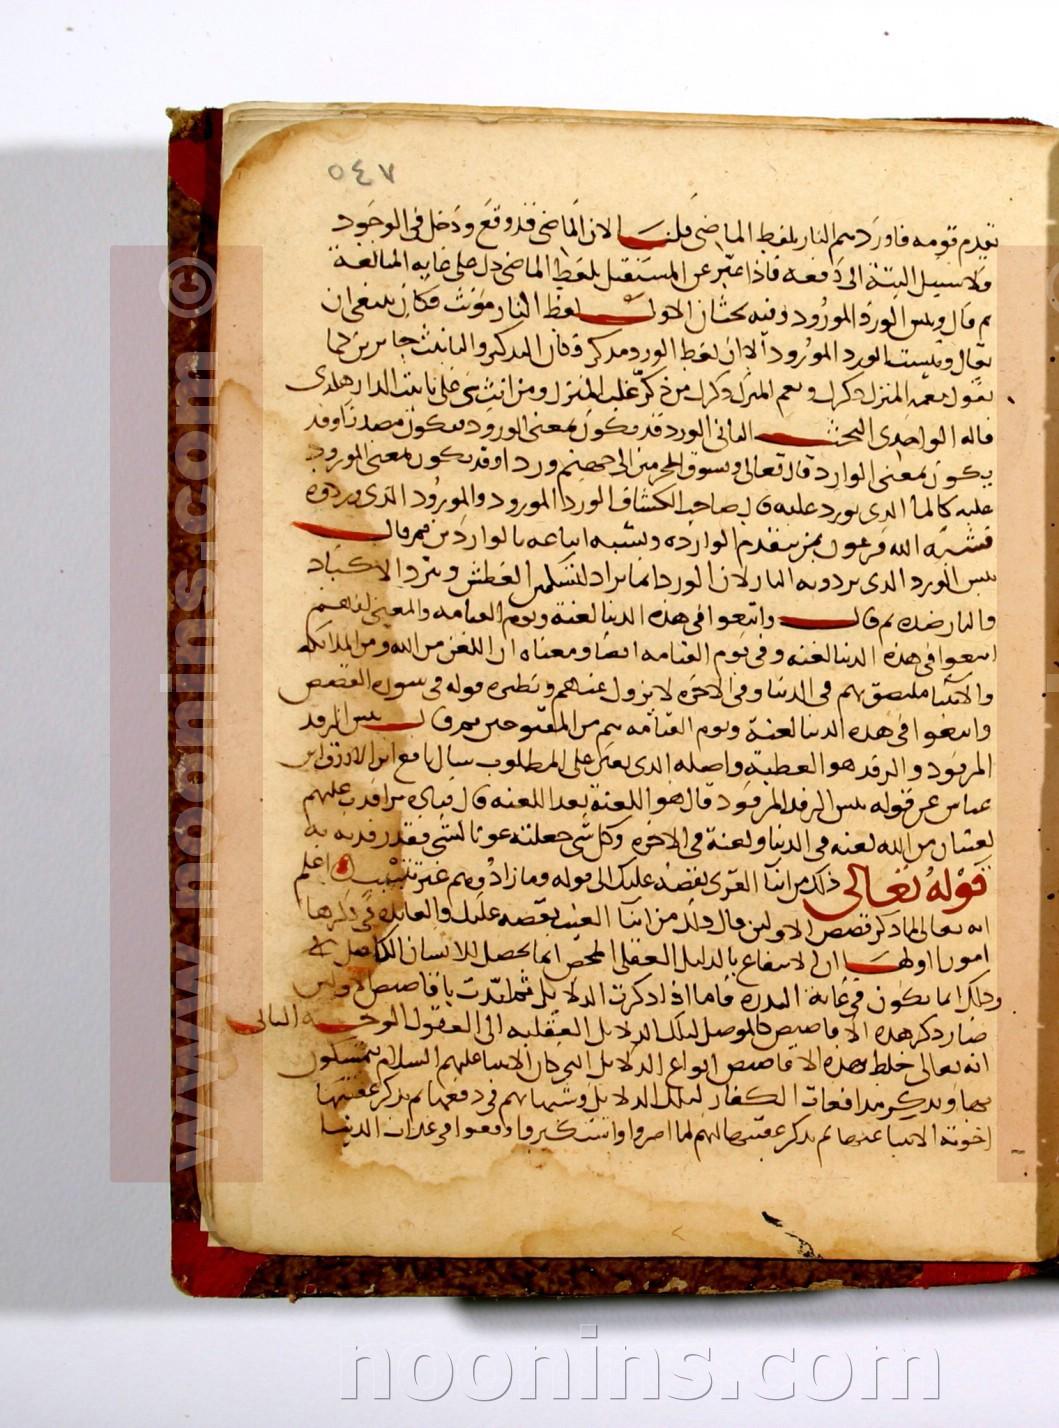 ٥٤٧
تقدم قومه فاوردهم النار بلفظ الماضي قلنا لان الماضي قد وقع ودخل في الوجود
ولا سبيل البتة الى دفعه فاذا عبر عن المستقبل بلفظ الماضي دل على غاية المبالغة
ثم قال وبئس الورد المورود وفيه بحثان الاول لفظ النار مؤنث فكان ينبغي ان
يقال وبئست الورد المورود الا ان لفظ الورد مذكر فكان التذكير والتانيث جايزين كما
تقول نعم المنزل دارك ونعمت المنزل دارك من ذكر غلب المنزل ومن انث بنى على تانيث الدار هكذى
قاله الواحدى البحث الثاني الورد قد يكون بمعنى الورود فيكون مصدرا وقد
يكون بمعنى الوارد قال تعالى ونسوق المجرمين الى جهنم وردا وقد يكون بمعنى المورود
عليه كالماء الذي يورد عليه قال صاحب الكشاف الورد المورود والمورود الذي وردوه
فشبه الله فرعون بمن يتقدم الواردة وشبه اتباعه بالواردين ثم قال
بئس الورد الذي يردونه النار لان الورد انما يراد لتسكين العطش وتبرد الاكباد
والنار ضده ثم قال واتبعوا في هذه الدنيا لعنة ويوم القيامة والمعنى انهم
اتبعوا في هذه الدنيا لعنة وفي يوم القيامة ايضا ومعناه ان اللعن من الله ومن الملائكة
والانبيا ملتصق بهم في الدنيا وفي الاخرة لا يزول عنهم ونظيره قوله في سورة القصص
واتبعوا في هذه الدنيا لعنة ويوم القيامة هم من المقبوحين ثم قال بئس الرفد
المرفود والرفد هو العطية واصله الذي يعين على المطلوب سال نافع ابن الازرق ابن
عباس عن قوله بئس الرفد المرفود قال هو اللعنة بعد اللعنة قال قتادة ترافدت عليهم
لعنتان من الله لعنة في الدنيا ولعنة في الاخرة وكل شي جعلته عونا لشي فقد رفدته به
قوله تعالى ذلك من انبا القرى نقصه عليك الى قوله وما زادوهم غير تتبيب اعلم
انه تعالى لما ذكر قصص الاولين قال ذلك من انبا الغيب نقصه عليك والفايدة في ذكرها
امور اولها ان الانتفاع بالدليل العقلي المحض انما يحصل للانسان الكامل
وذلك انما يكون في غاية الندرة فاما اذا ذكرت الدلايل ثم اكدت باقاصيص الاولين
صار ذكر هذه الاقاصيص كالموصل لتلك الدلايل العقلية الى العقول الوجه الثاني
انه تعالى خلط بهذه الاقاصيص انواع الدلايل التي كان الانبيا عليهم السلام يتمسكون
بها ويذكر مدافعات الكفار لتلك الدلايل وشبهاتهم في دفعها ثم يذكر عقيبها
اجوبة الانبيا عنها ثم يذكر عقيبها انهم لما اصروا واستكبروا وقعوا في عذاب الدنيا
© www.noonins.com
noonins.com